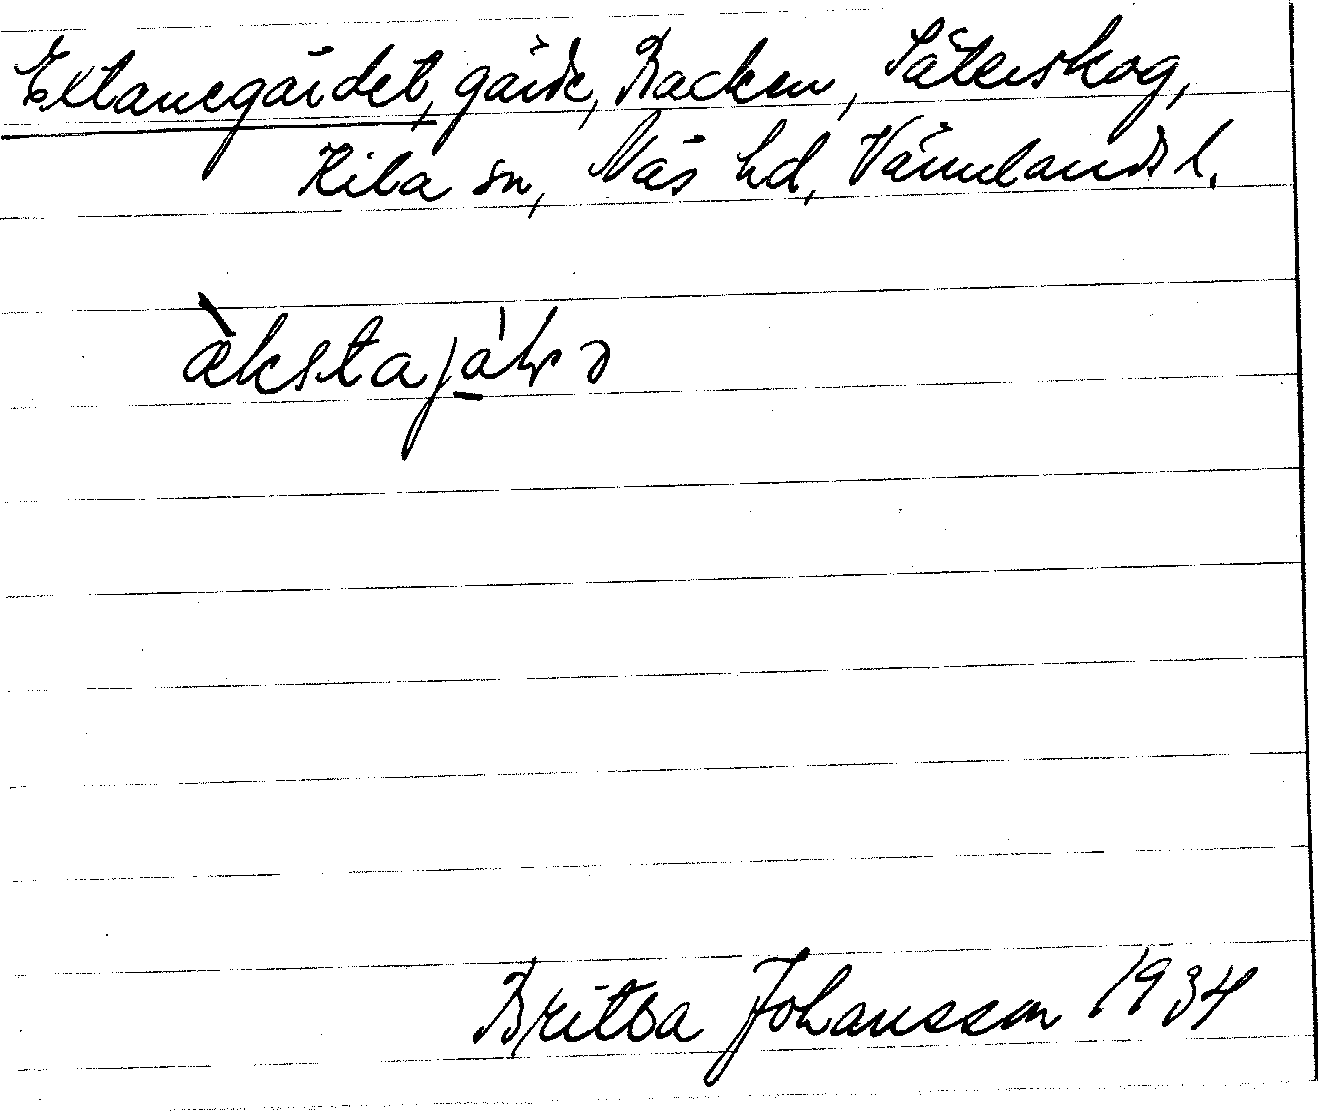 Extanegärdet, gärde, Backen, Säterskog,
Kila sn, Näs hd, Värmlands l.
Britta Johansson 1934